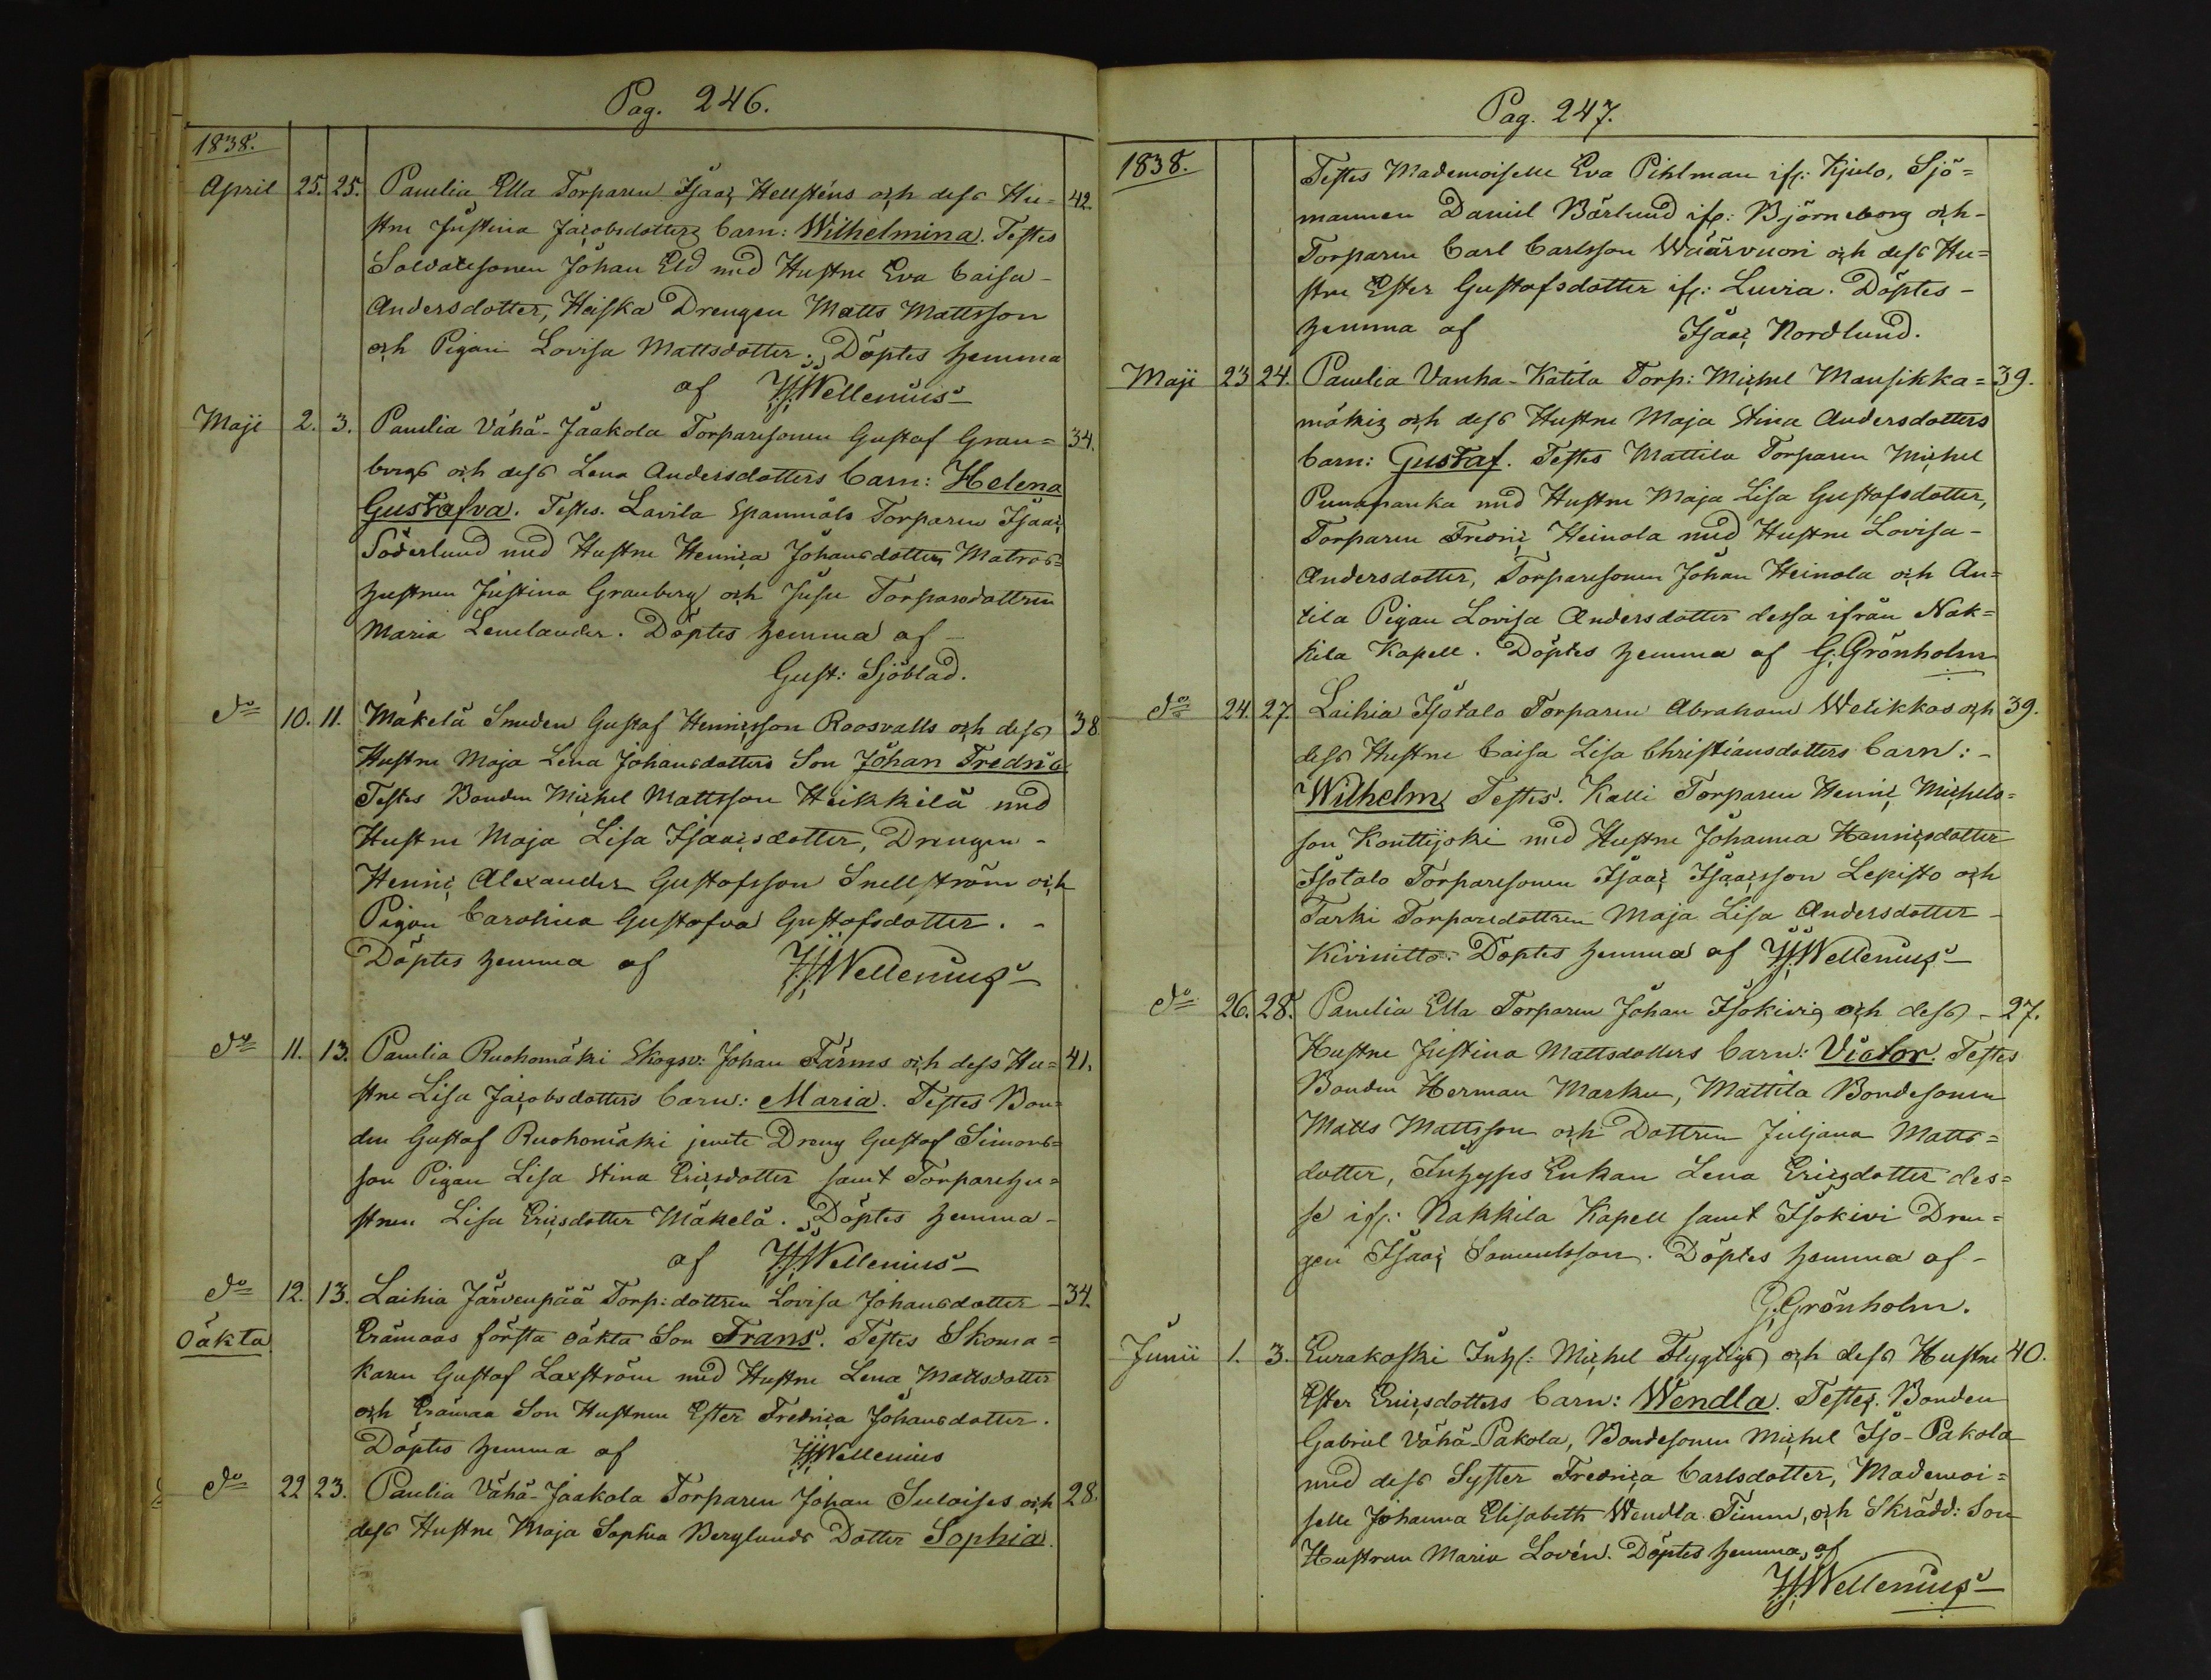 Pag. 246.
1838.
April 25. 25. Panelia Ella Torparen Isaac Hellsténs och dess Hu= 42.
stru Justina Jacobsdotters barn: Wilhelmina. Testes
Soldatesonen Johan Eld med Hustru Eva Caisa-
Andersdotter, Heiska Drengen Matts Mattsson
och Pigan Lovisa Mattsdotter. Döptes hemma
af Wellenius
Maji 2. 3. Panelia Vähä-Jaakola Torparesonen Gustaf Gran= 34.
bergs och dess Lena Andersdotters barn: Helena
Gustafva. Testes. Lavila Torparen Isaac
Söderlund med Hustru Henrica Johansdotter, Matros=
hustrun Justina Granberg och Torparedottren
Maria Lemlander. Döptes hemma af-
Gust: Sjöblad.
do 10. 11. Mäkelä Smeden Gustaf Henricsson Roosvalls och dess 38
Hustru Maja Lena Johansdotters Son Johan Fredric
Testes Bonden Michel Mattsson Heikkilä med
Hustru Maja Lisa Isaacsdotter, Drengen-
Henric Alexander Gustafsson Snellström och
Pigan Carolina Gustafva Gustafsdotter. -
Döptes hemma af Wellenius
do 11. 13. Panelia Ruohomäki Skogsv: Johan Färms och dess Hu= 41.
stru Lisa Jacobsdotters barn: Maria. Testes Bon=
den Gustaf Ruohomäki jemte Dreng Gustaf Simons=
son Pigan Lisa Stina Ericsdotter samt Torparehu=
strun Lisa Ericsdotter Mäkelä. Döptes hemma-
af Wellenius
do 12. 13. Laihia Järvenpää Torp: dottren Lovisa Johansdotter 34.
Oäkta Erämaas första oäkta Son Frans. Testes Skoma=
karen Gustaf Laxström med Hustru Lena Mattsdotter
och Erämaa Son Hustrun Ester Fredrica Johansdotter.
Döptes hemma af Wellenius
do 22 23. Panelia Vähä-Jaakola Torparen Johan Suloises och 28.
dess Hustru Maja Sophia Berglunds Dotter Sophia.
Pag. 247.
1838.
Testes Mademoiselle Eva Pihlman ifr: Kjulo, Sjö=
mannen Daniel Bärlund ifr: Björneborg och-
Torparen Carl Carlsson Wäärvuori och dess Hu=
stru Ester Gustafsdotter ifr: Luvia. Döptes-
hemma af Isaac Nordlund.
Maji 23 24. Panelia Vanha-Katila Torp: Michel Mansikka= 39.
mäkis och dess Hustru Maja Stina Andersdotters
barn: Gustaf. Testes Mattila Torparen Michel
Punapauka med Hustru Maja Lisa Gustafsdotter,
Torparen Fredric Heinola med Hustru Lovisa-
Andersdotter, Torparesonen Johan Heinola och An=
tila Pigan Lovisa Andersdotter dessa ifrån Nak=
kila Kapell. Döptes hemma af G. Grönholm
do 24. 27. Laihia Isotalo Torparen Abraham Welikkos och 39.
dess Hustru Caisa Lisa Christiansdotters barn: -
Wilhelm Testes. Kalli Torparen Henric Michels=
son Konttijoki med Hustru Johanna Henricsdotter
Isotalo Torparesonen Isaac Isaacsson Lepisto och
Tarki Torparedottren Maja Lisa Andersdotter-
Kiviniitto. Döptes hemma af Wellenius
do 26. 28. Panelia Ella Torparen Johan Isokivis och dess- 27.
Hustru Justina Mattsdotters barn: Victor. Testes
Bonden Herman Marku, Mattila Bondesonen
Matts Mattsson och Dottren Juljana Matts=
dotter, Inhyses Enkan Lena Ericsdotter des=
se ifr: Nakkila Kapell samt Isokivi Dren=
gen Isaac Samuelsson. Döptes hemma af-
G. Grönholm.
Junii 1. 3. Eurakoski Inh: Michel Flygtigs och dess Hustru 40.
Ester Ericsdotters barn: Wendla. Testes. Bonden
Gabriel Vähä-Pakola, Bondesonen Michel Iso-Pakola
med dess Syster Fredrica Carlsdotter, Mademoi=
selle Johanna Elisabeth Wendla Timm, och Skrädd: Son
Hustrun Maria Lovén. Döptes hemma, af
Wellenius